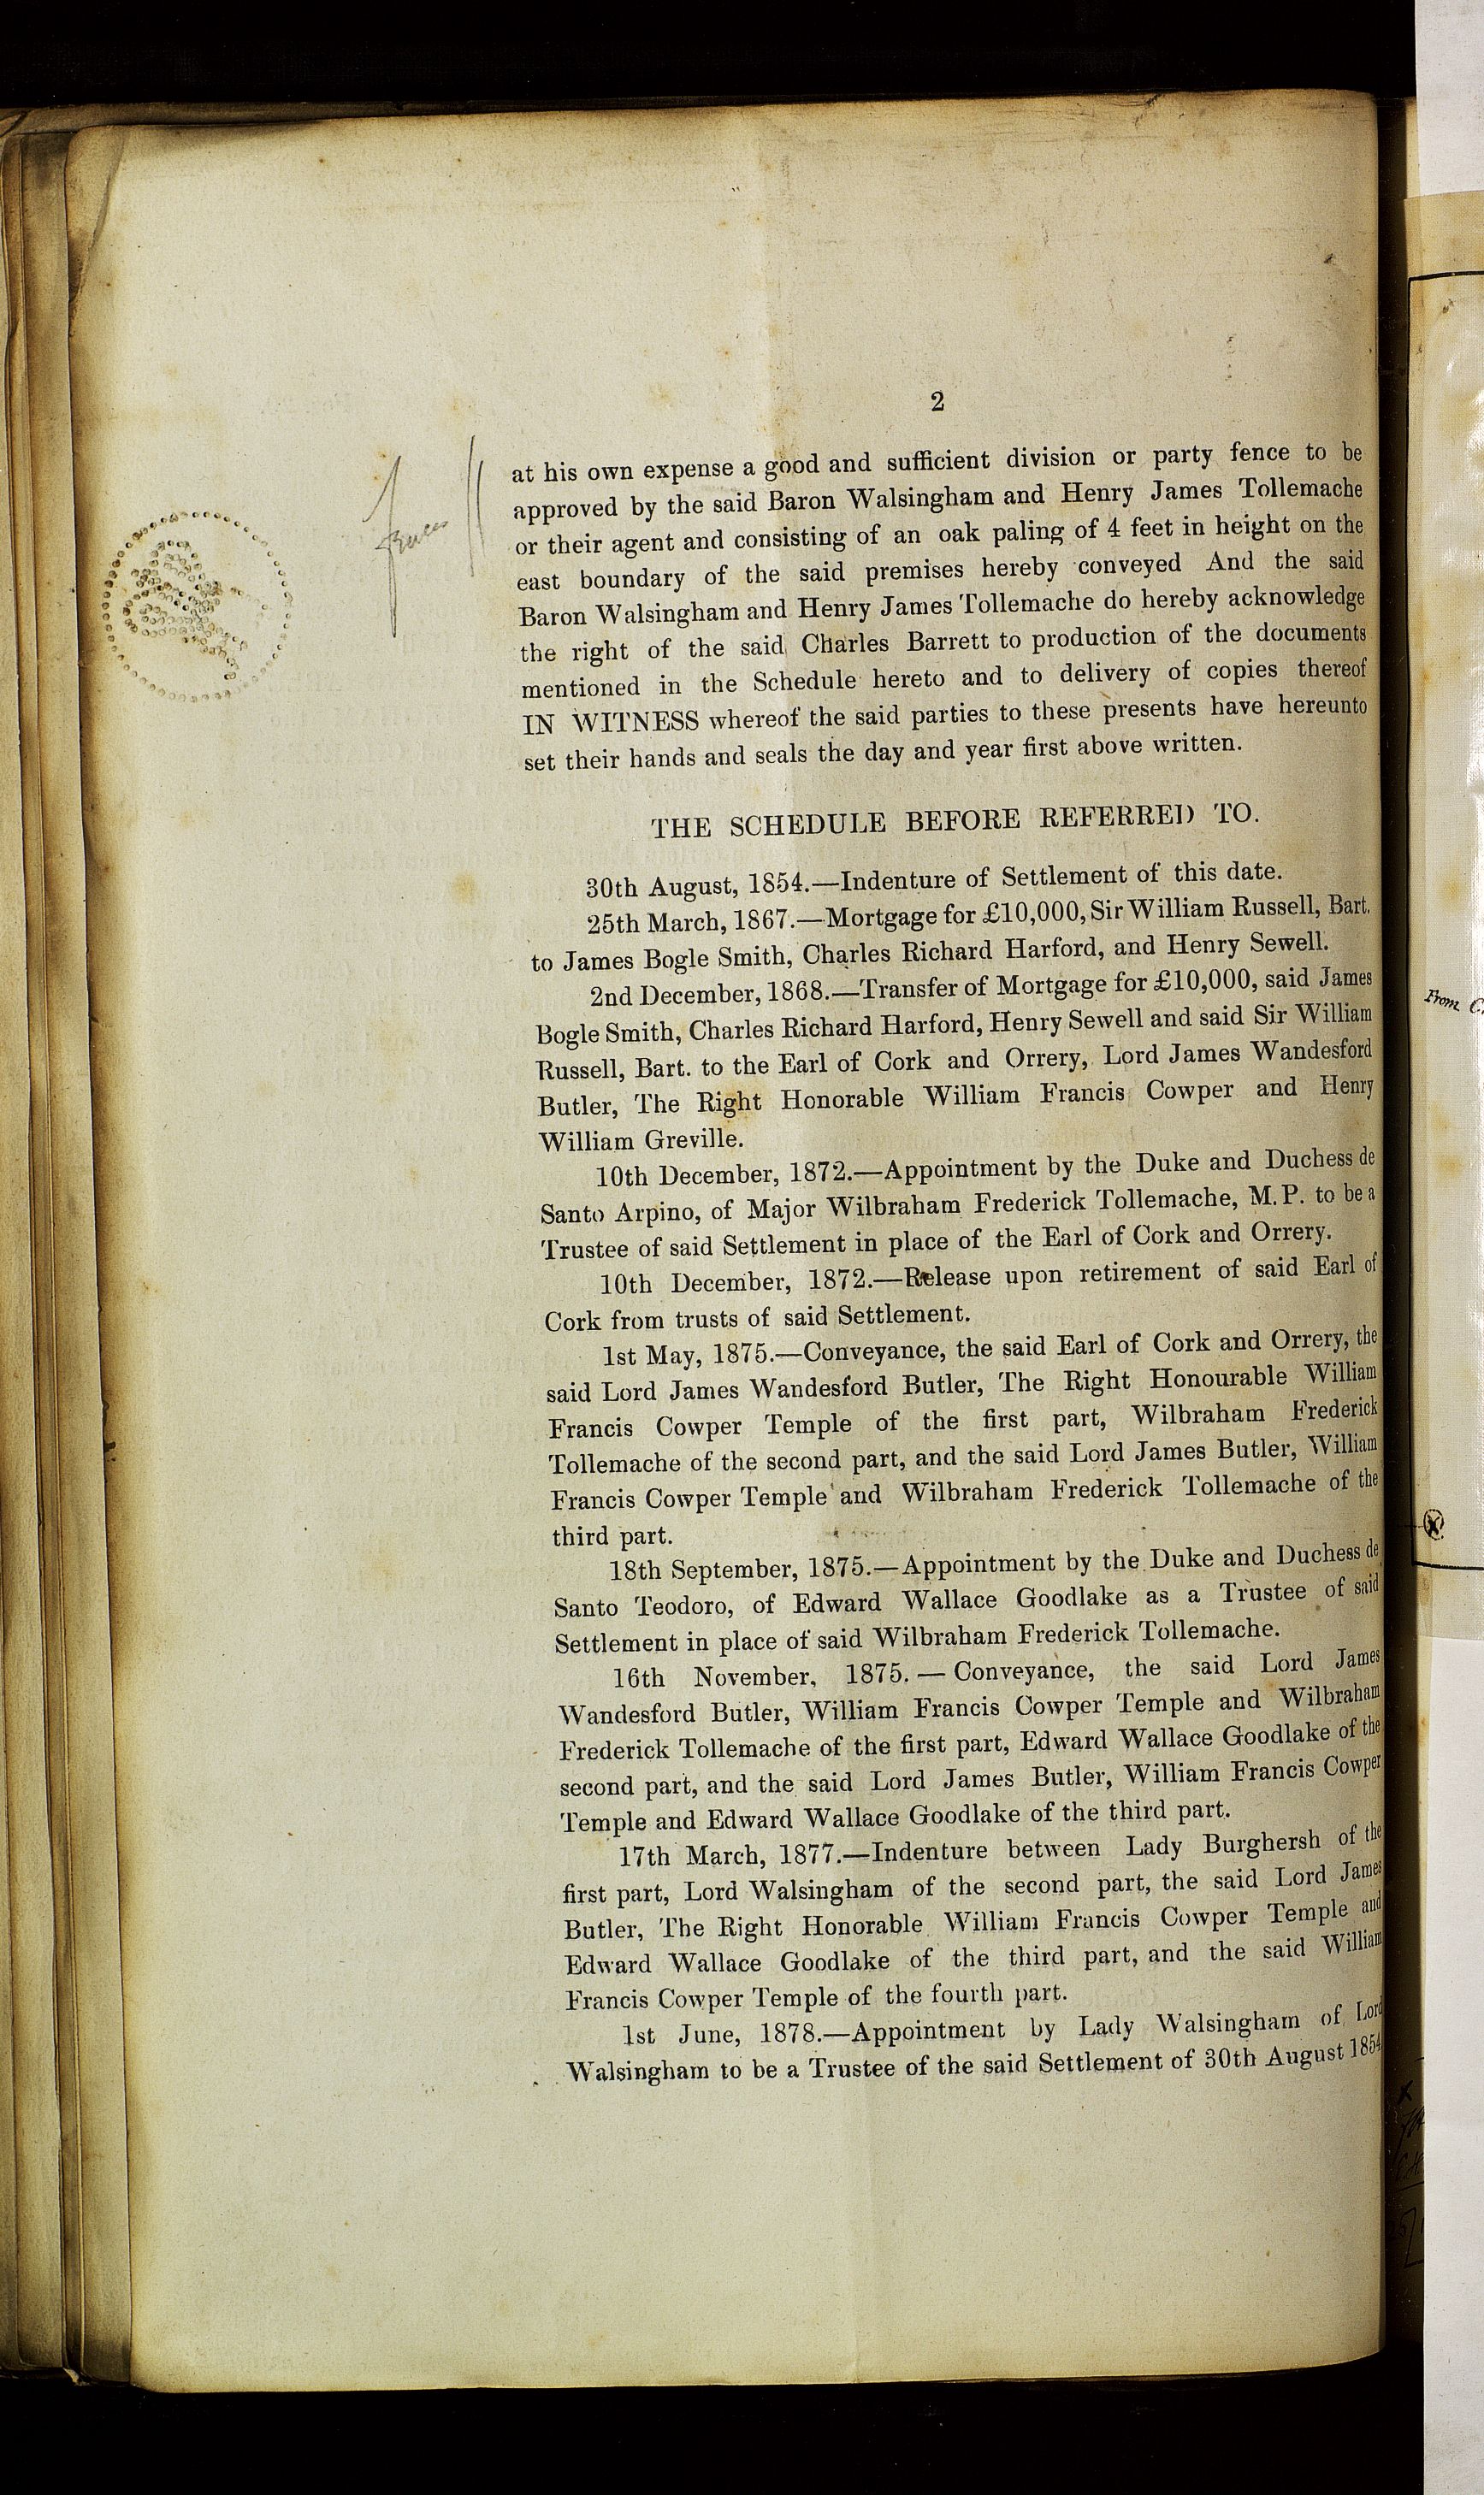 2
at his own expense a good and sufficient division or party fence to be
approved by the said Baron Walsingham and Henry James Tollemache
or their agent and consisting of an oak paling of 4 feet in height on the
east boundary of the said premises hereby conveyed And the said
Baron Walsingham and Henry James Tollemache do hereby acknowledge
the right of the said Charles Barrett to production of the documents
mentioned in the Schedule hereto and to delivery of copies thereof
IN WITNESS whereof the said parties to these presents have hereunto
set their hands and seals the day and year first above written.
THE SCHEDULE BEFORE REFERRED TO.
30th August, 1854.—Indenture of Settlement of this date.
25th March, 1867.—Mortgage for £10,000, Sir William Russell, Bart.
to James Bogle Smith, Charles Richard Harford, and Henry Sewell.
2nd December, 1868.—Transfer of Mortgage for £10,000, said James
Bogle Smith, Charles Richard Harford, Henry Sewell and said Sir William
Russell, Bart. to the Earl of Cork and Orrery, Lord James Wandesford
Butler, The Right Honorable William Francis Cowper and Henry
William Greville.
10th December, 1872.—Appointment by the Duke and Duchess de
Santo Arpino, of Major Wilbraham Frederick Tollemache, M.P. to be a
Trustee of said Settlement in place of the Earl of Cork and Orrery.
10th December, 1872.—Release upon retirement of said Earl of
Cork from trusts of said Settlement.
1st May, 1875.—Conveyance, the said Earl of Cork and Orrery, the
said Lord James Wandesford Butler, The Right Honourable William
Francis Cowper Temple of the first part, Wilbraham Frederick
Tollemache of the second part, and the said Lord James Butler, William
Francis Cowper Temple and Wilbraham Frederick Tollemache of the
third part.
18th September, 1875.—Appointment by the Duke and Duchess de
Santo Teodoro, of Edward Wallace Goodlake as a Trustee of said
Settlement in place of said Wilbraham Frederick Tollemache.
16th November, 1875.—Conveyance, the said Lord James
Wandesford Butler, William Francis Cowper Temple and Wilbraham
Frederick Tollemache of the first part, Edward Wallace Goodlake of the
second part, and the said Lord James Butler, William Francis Cowper
Temple and Edward Wallace Goodlake of the third part.
17th March, 1877.—Indenture between Lady Burghersh of the
first part, Lord Walsingham of the second part, the said Lord James
Butler, The Right Honorable William Francis Cowper Temple and
Edward Wallace Goodlake of the third part, and the said William
Francis Cowper Temple of the fourth part.
1st June, 1878.—Appointment by Lady Walsingham of Lord
Walsingham to be a Trustee of the said Settlement of 30th August 1854
From